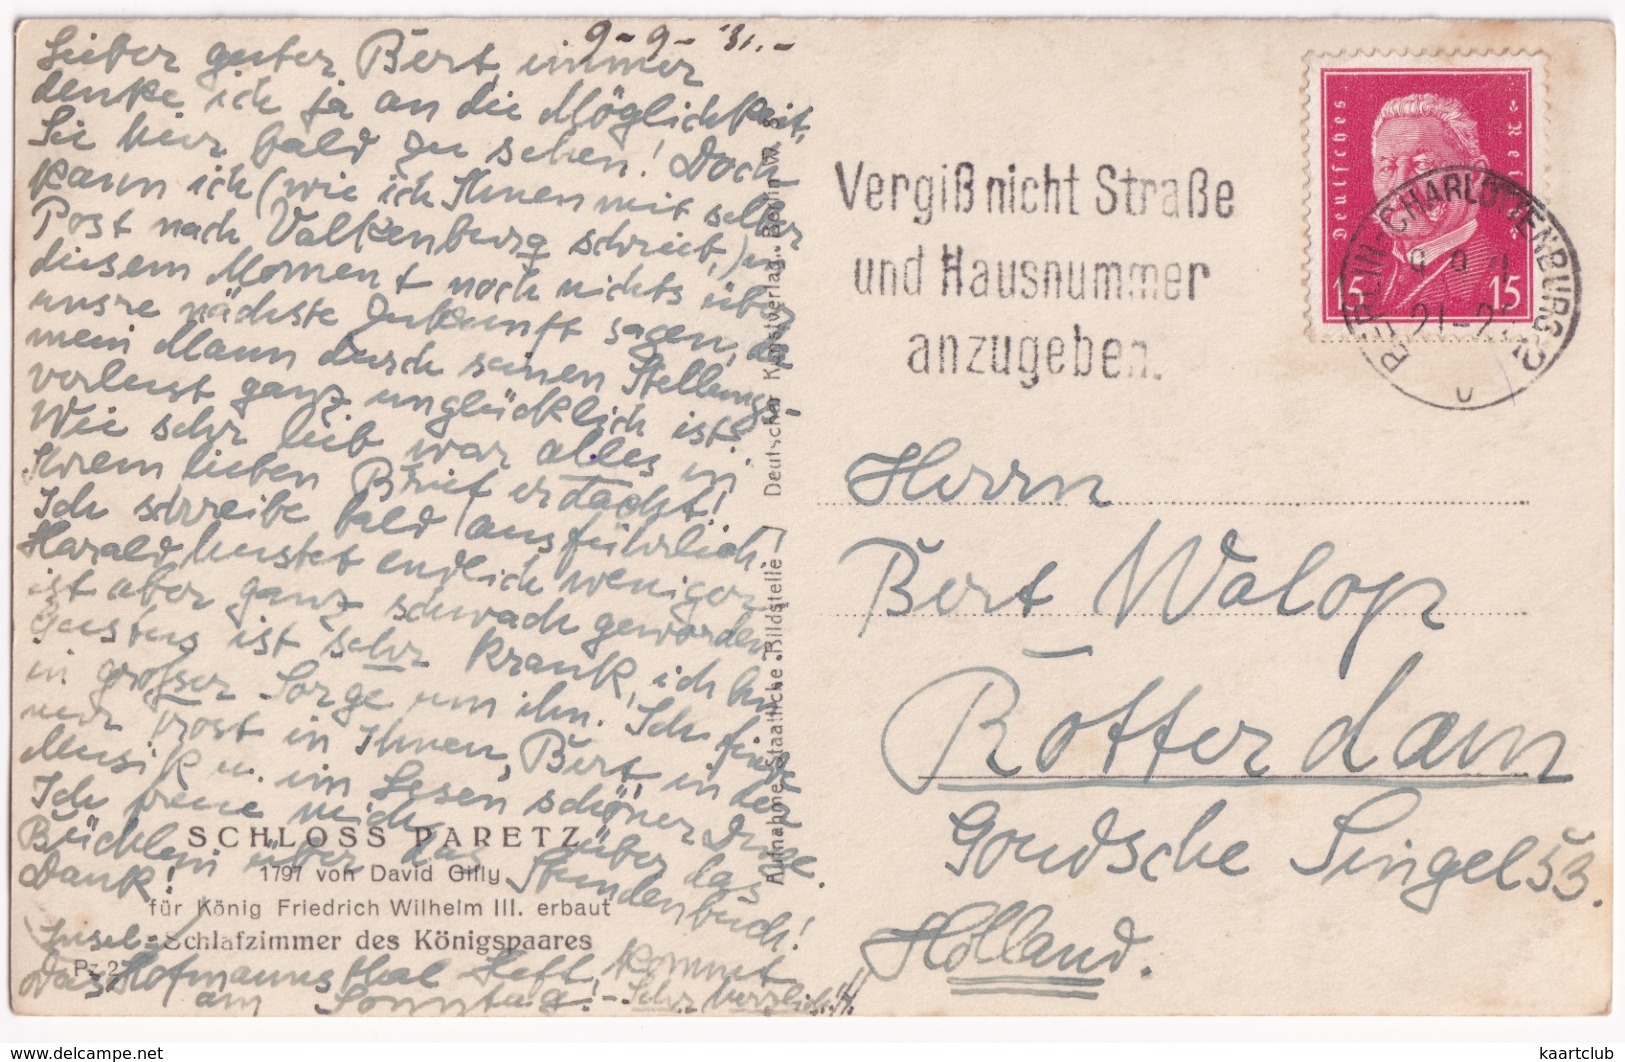 9-9-31.-
Lieber guter Bert, immer
denke ich ja an die Möglichkeit,
Sie hier bald zu sehen! Doch
kann ich (wie ich Ihnen mit selber
Post nach Valkenburg schrieb,) in
diesem Moment noch nichts über
unsre nächste Zukunft sagen, da
mein Mann durch seinen Stellungs-
verlust ganz unglücklich ist.
Wie sehr lieb war alles in
Ihrem lieben Brief erdacht!
Ich schreibe bald ausführlich!
Harald hustet endlich weniger
ist aber ganz schwach geworden
Gustus ist sehr krank, ich bin
in großer Sorge um ihn. Ich finde
nur Trost in Ihnen, Bert, in der
Musik u. im Lesen schöner Dinge.
Ich freue mich über das
Büchlein über das Stundenbuch!
Dank!
Insel-
Das Hofmannsthal Heft, kommt
am Sonntag! - Sehr herzlichst,
SCHLOSS PARETZ
1797 von David Gilly
für König Friedrich Wilhelm III. erbaut
Schlafzimmer des Königspaares
Pz 2
Aufnahme Staatliche Bildstelle / Deutscher Kunstverlag. Berlin W 8
Vergiß nicht Straße
und Hausnummer
anzugeben.
Deutsches Reich
15 15
BERLIN-CHARLOTTENBURG 2
Herrn
Bert Walop
Rotterdam
Goudsche Singel 53.
Holland.
kaartclub
www.delcampe.net